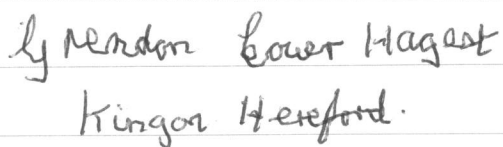 Grendon Lower Hagest
Kingon Hereford.